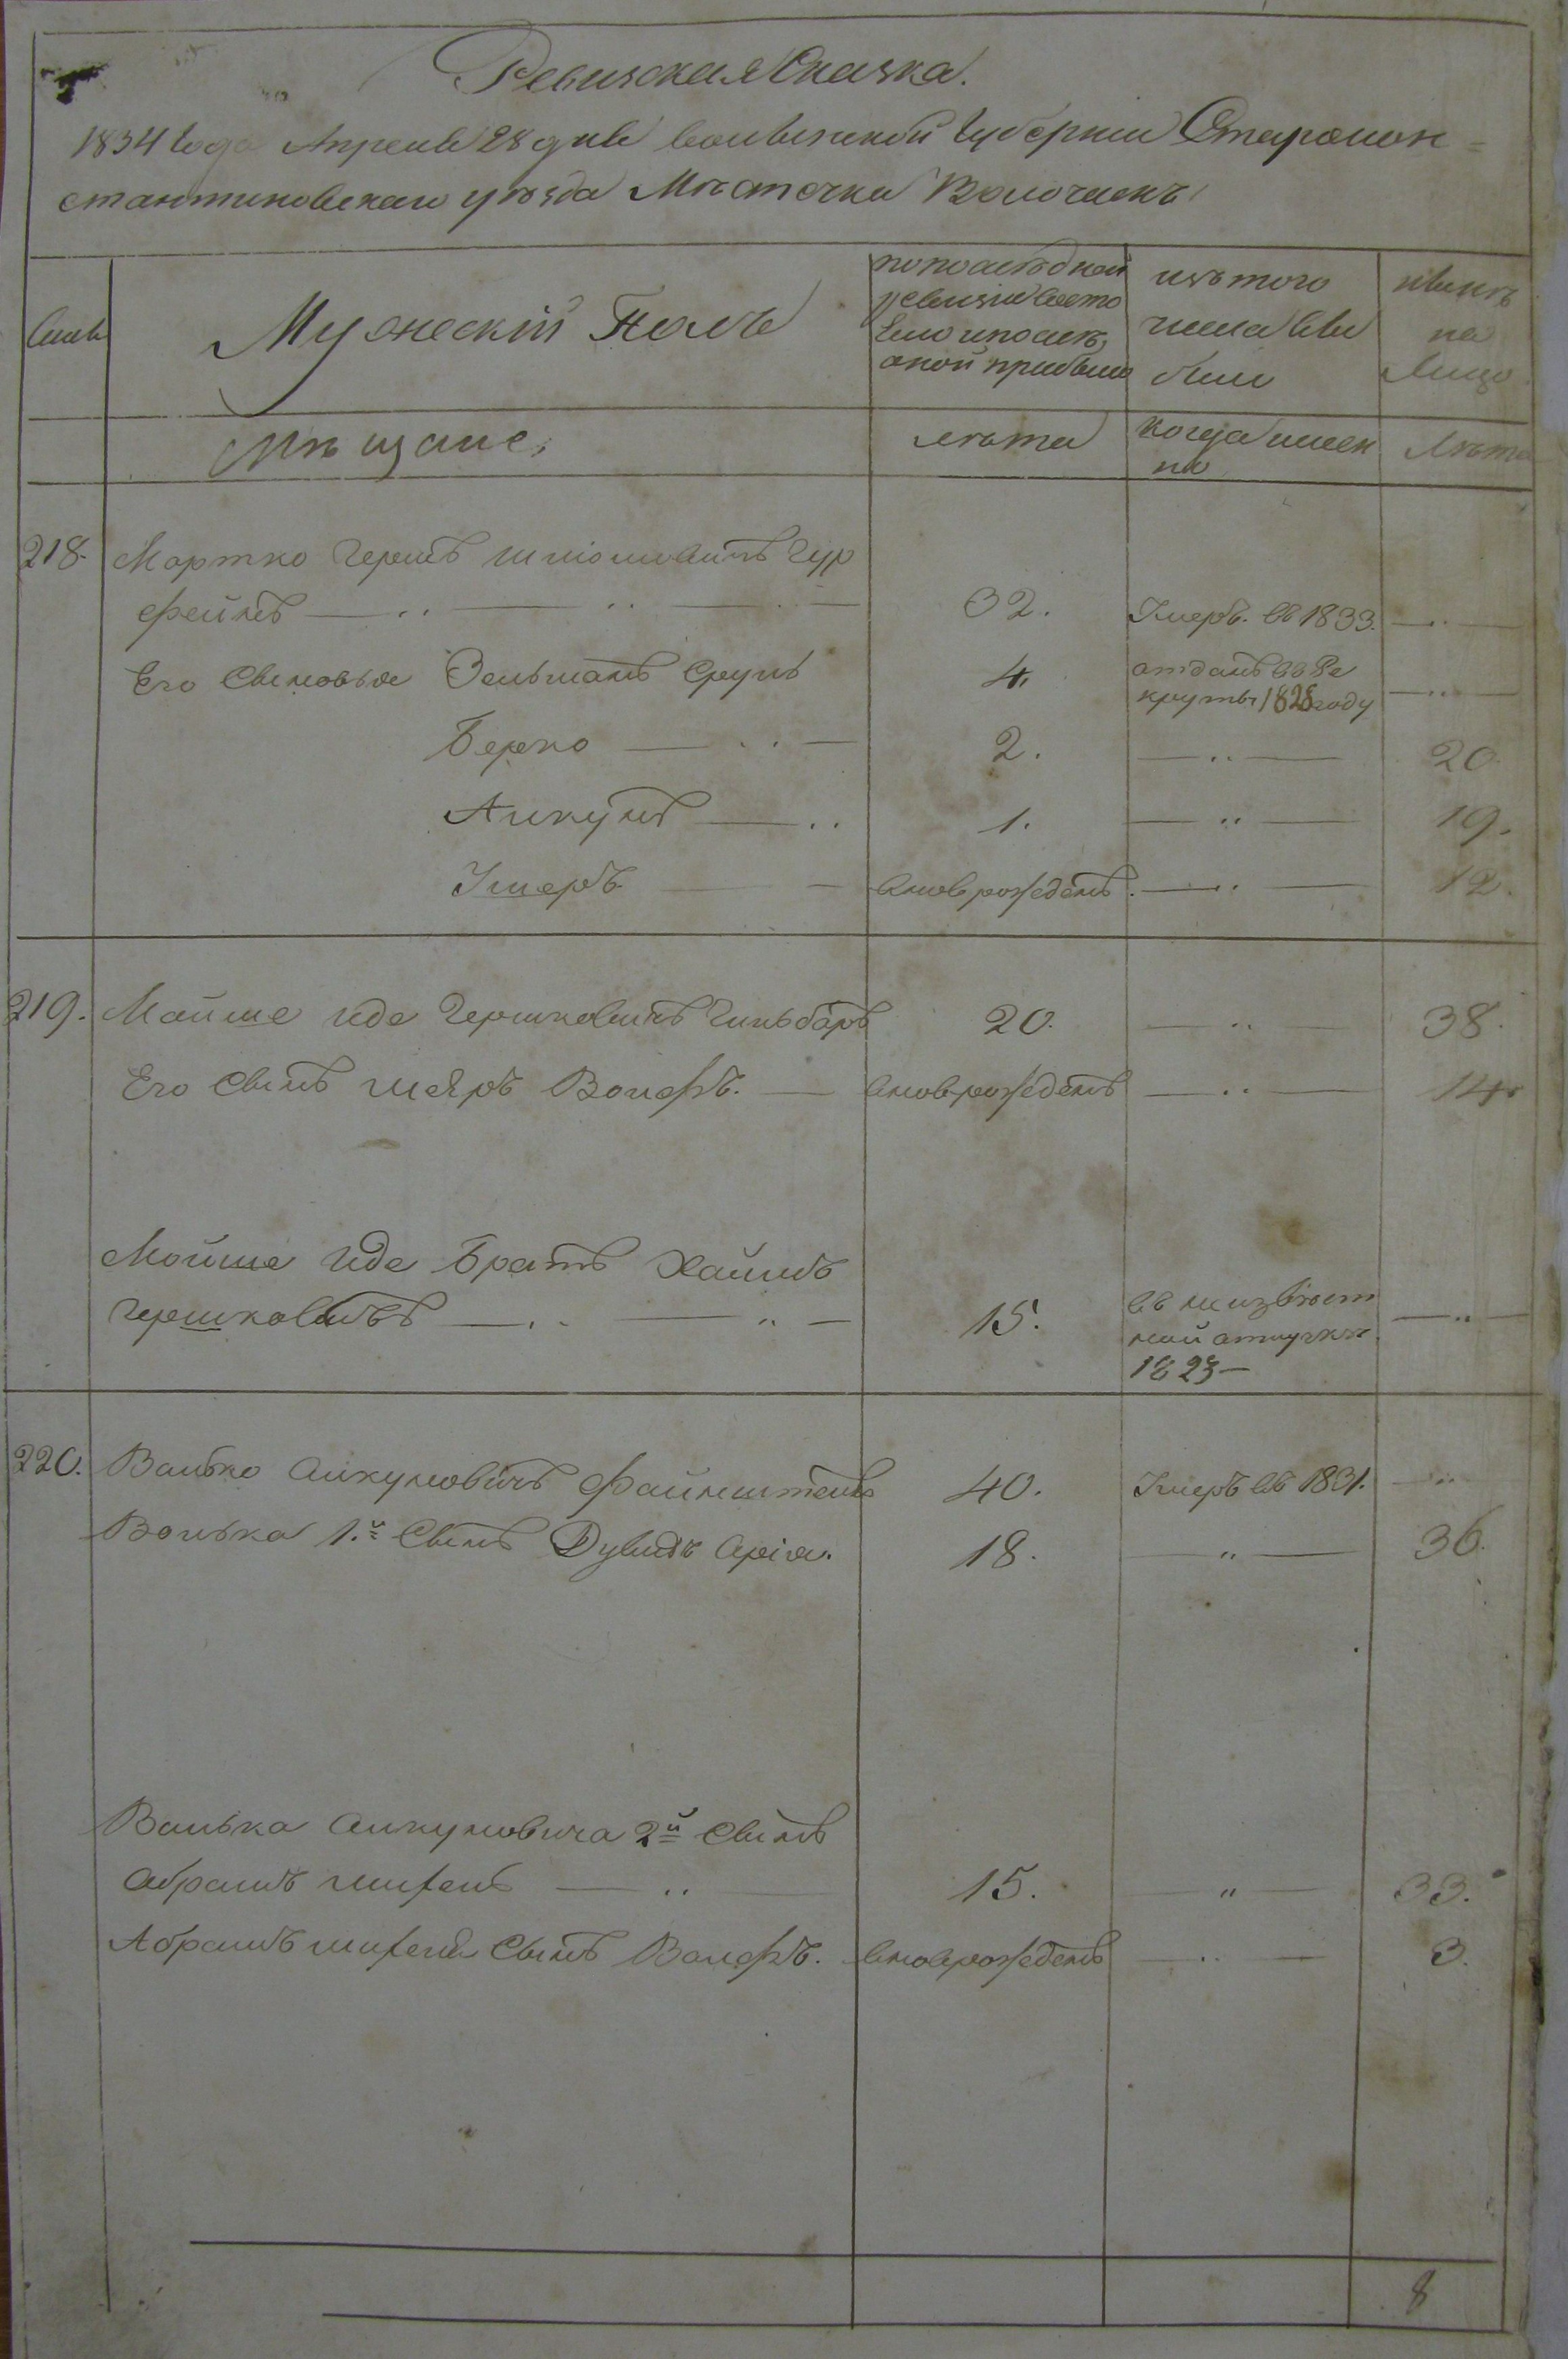 Ревизская Сказка.
1834 года Апреля 28 дня Волынской Губернии Старокон=
стантиновскаго уѣзда Мѣстечка Волочискъ
Семьи
Мужескій Полъ
по последней
ревизіи состо
яло и послѣ
оной прибыло
изъ того
числа вы
было
нынѣ
на
лицо
Мѣщане,
лѣта
когда имен
но
Лѣта
218. Мортко Гершъ Шліомовичъ Гур
фейнъ — 32. Умеръ въ 1833. —
Его Сыновья Зельманъ Сруль 4. отданъ въ Ре
круты 1828 году —
Берко — 2. — 20
Анкумъ — 1. — 19.
Умеръ — вновърожденъ — 12.
219. Мойше Иде Гершковичъ Гильбаръ 20. — 38.
Его Сынъ Меяръ Волфъ. — вновърожденъ — 14.
Мойше Иде Братъ Хаимъ
Гершковичъ — 15. въ неизвѣст
ной отлучкѣ
1823 — —
220. Волько Анкумовичъ Файнштенъ 40. Умеръ въ 1831. —
Волька 1.й Сынъ Дувидъ Арія. 18. — 36.
Волька Анкумовича 2й Сынъ
Абрамъ — 15. — 33.
Абрамъ Сынъ Волфъ. вновърожденъ — 3.
8